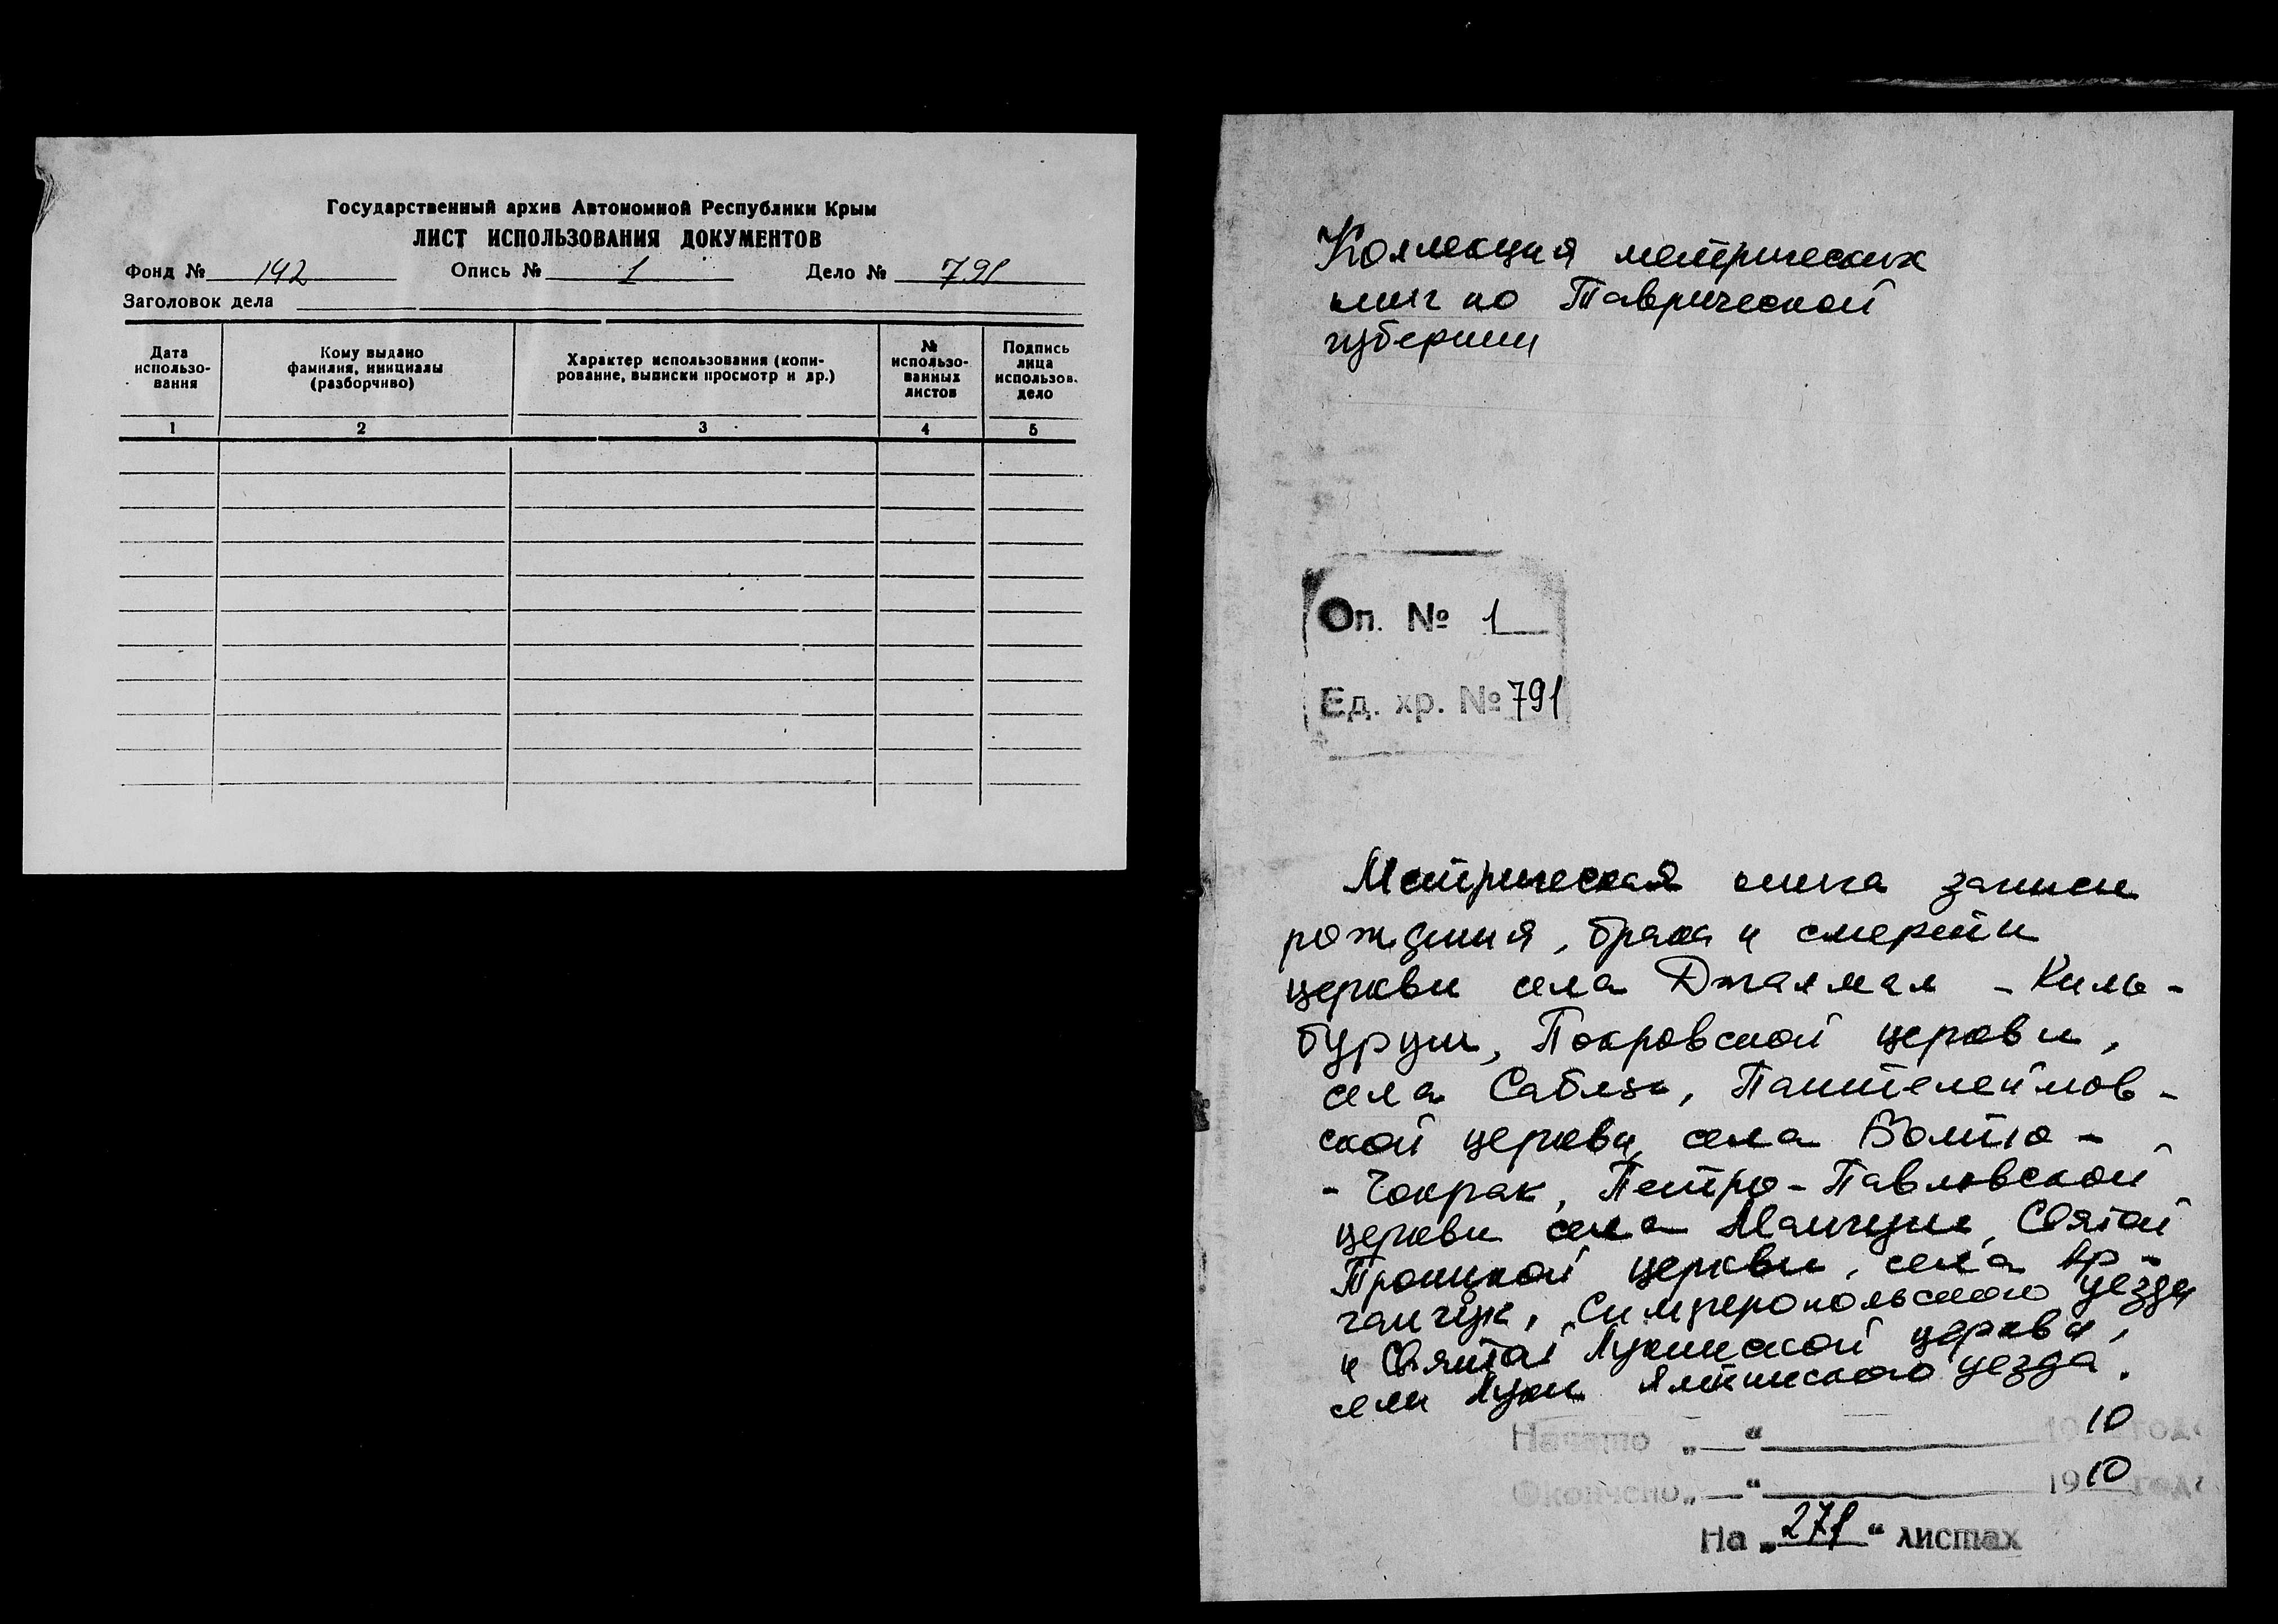 Государственный архив Автономной Республики Крым
ЛИСТ ИСПОЛЬЗОВАНИЯ ДОКУМЕНТОВ
Фонд № 142 Опись № 1 Дело № 791
Заголовок дела
Дата использо-вания
Кому выдано фамилия, инициалы (разборчиво)
Характер использования (копи-рование, выписки просмотр и др.)
№ использо-ванных листов
Подпись лица использов. дело
1 2 3 4 5
Коллекция метрических
книг по Таврической
губернии
Оп. № 1
Ед. хр. № 791
Метрическая книга записи
рождения, брака и смерти
церкви села Джалман - Киль-
бурун, Покровской церкви,
села Саблы, Пантелеймов-
ской церкви, села Болто-
- Чокрак, Петро-Павловской
церкви села Мангуш, Святой
Троицкой церкви, села Ар-
ганчук, Симферопольского уезда
и Святой Лукинской церкви,
села Луки Ялтинского уезда.
Начато „ “ 1910 года
Окончено „ “ 1910 года
На „271“ листах